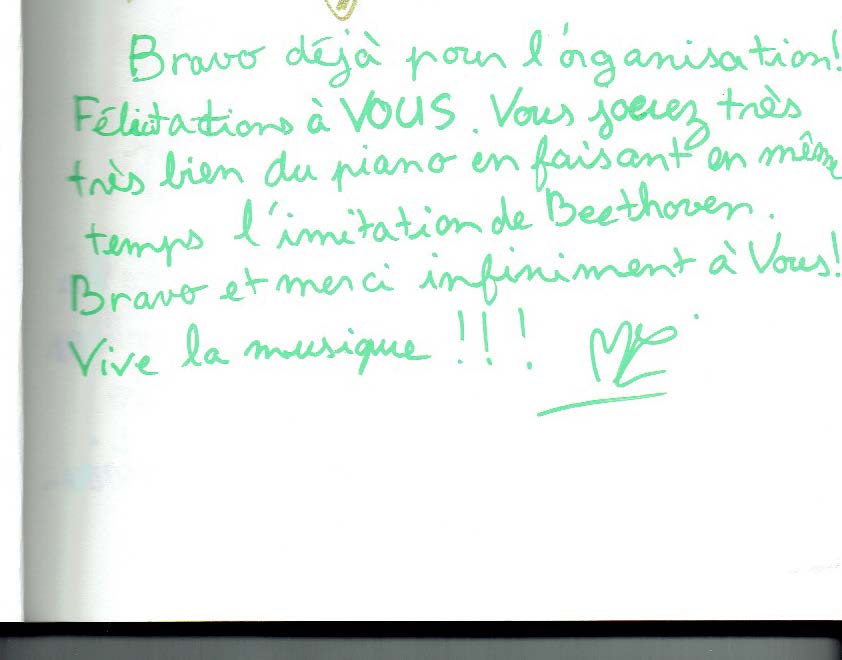 Bravo déjà pour l'organisation!
Félicitations à VOUS. Vous jouez très
très bien du piano en faisant en même
temps l'imitation de Beethoven.
Bravo et merci infiniment à Vous!
Vive la musique !!!